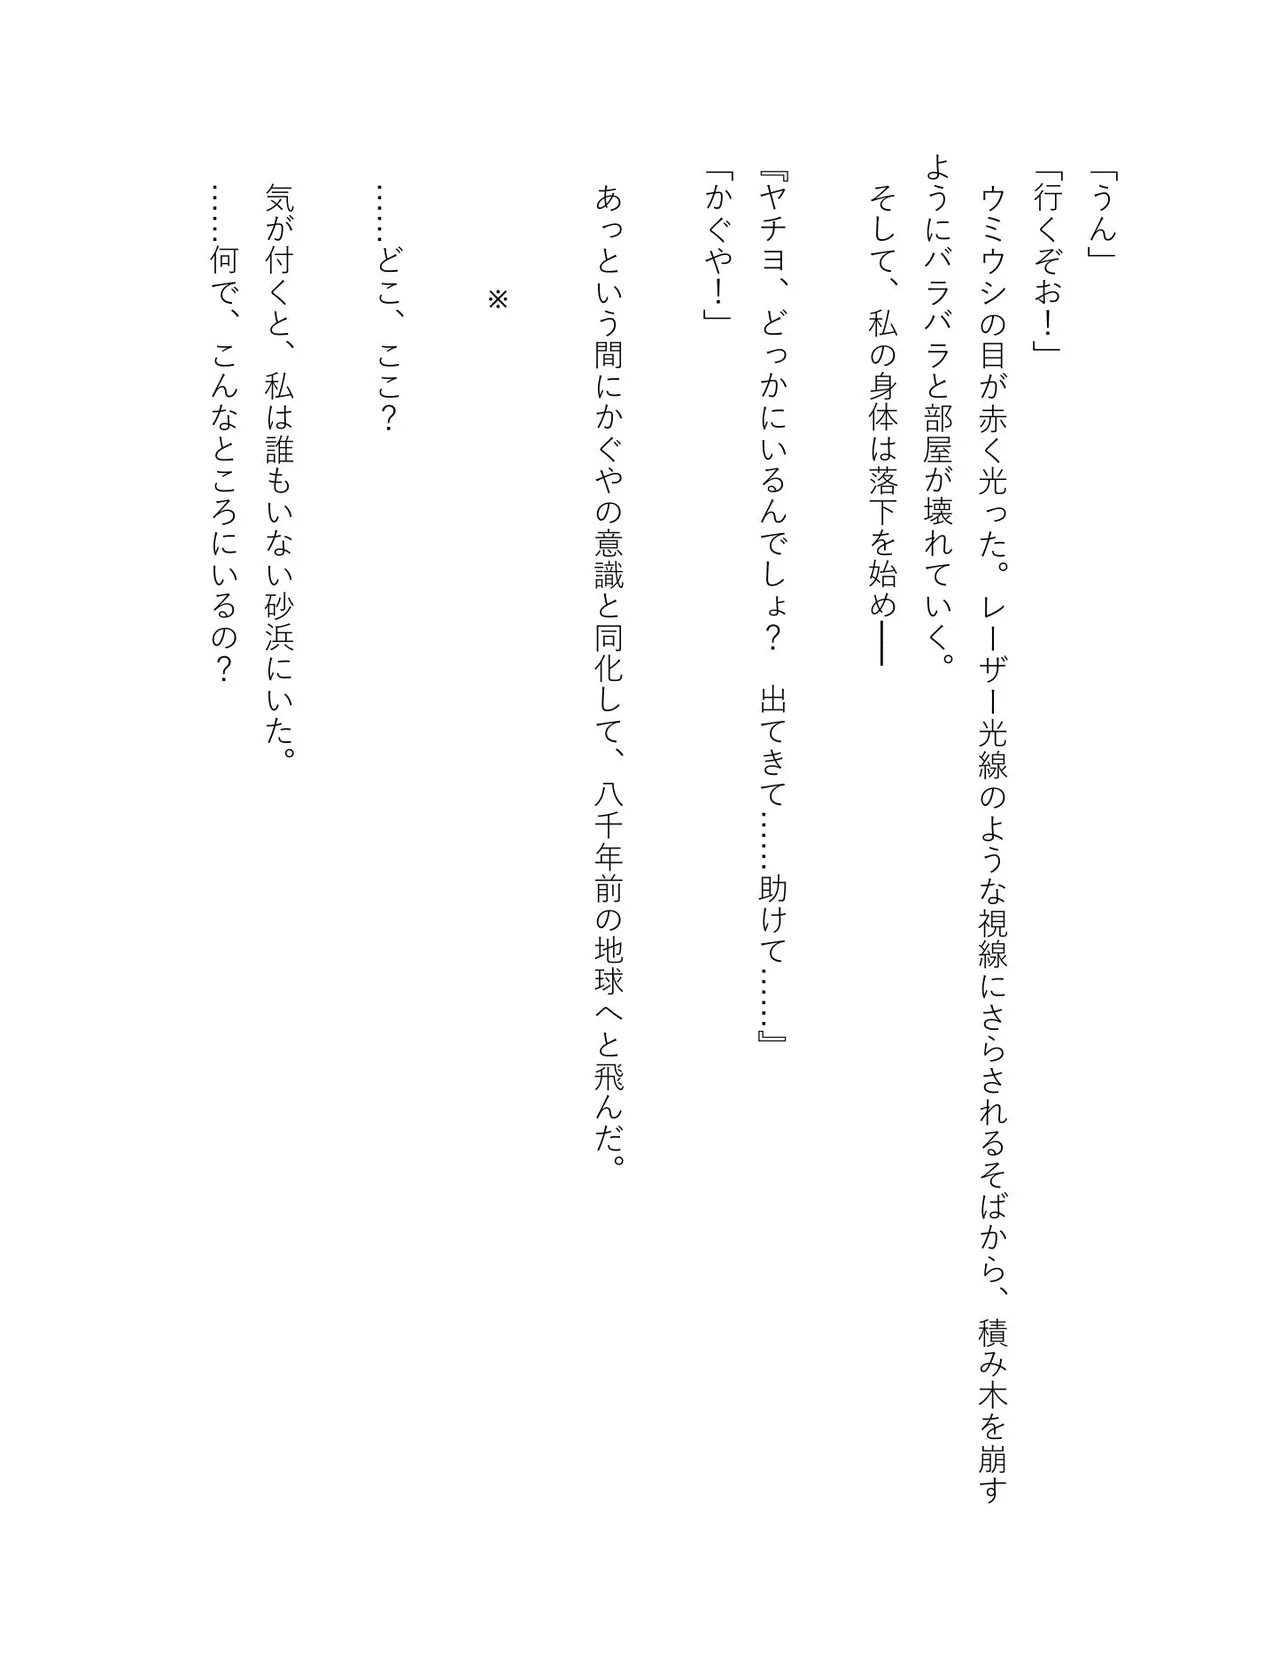 「うん」
「行くぞお！」
　ウミウシの目が赤く光った。レーザー光線のような視線にさらされるそばから、積み木を崩す
ようにバラバラと部屋が壊れていく。
　そして、私の身体は落下を始め――
『ヤチヨ、どっかにいるんでしょ？　出てきて……助けて……』
「かぐや！」
　あっという間にかぐやの意識と同化して、八千年前の地球へと飛んだ。
※
　……どこ、ここ？
　気が付くと、私は誰もいない砂浜にいた。
　……何で、こんなところにいるの？